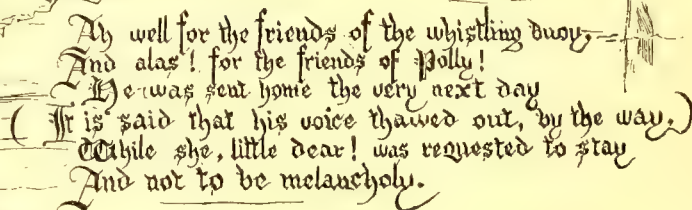 Ah well for the friends of the whistling buoy,
And alas! for the friends of Polly!
He was sent home the very next day
(It is said that his voice thawed out, by the way,)
While she, little dear! was requested to stay
And not to be melancholy.